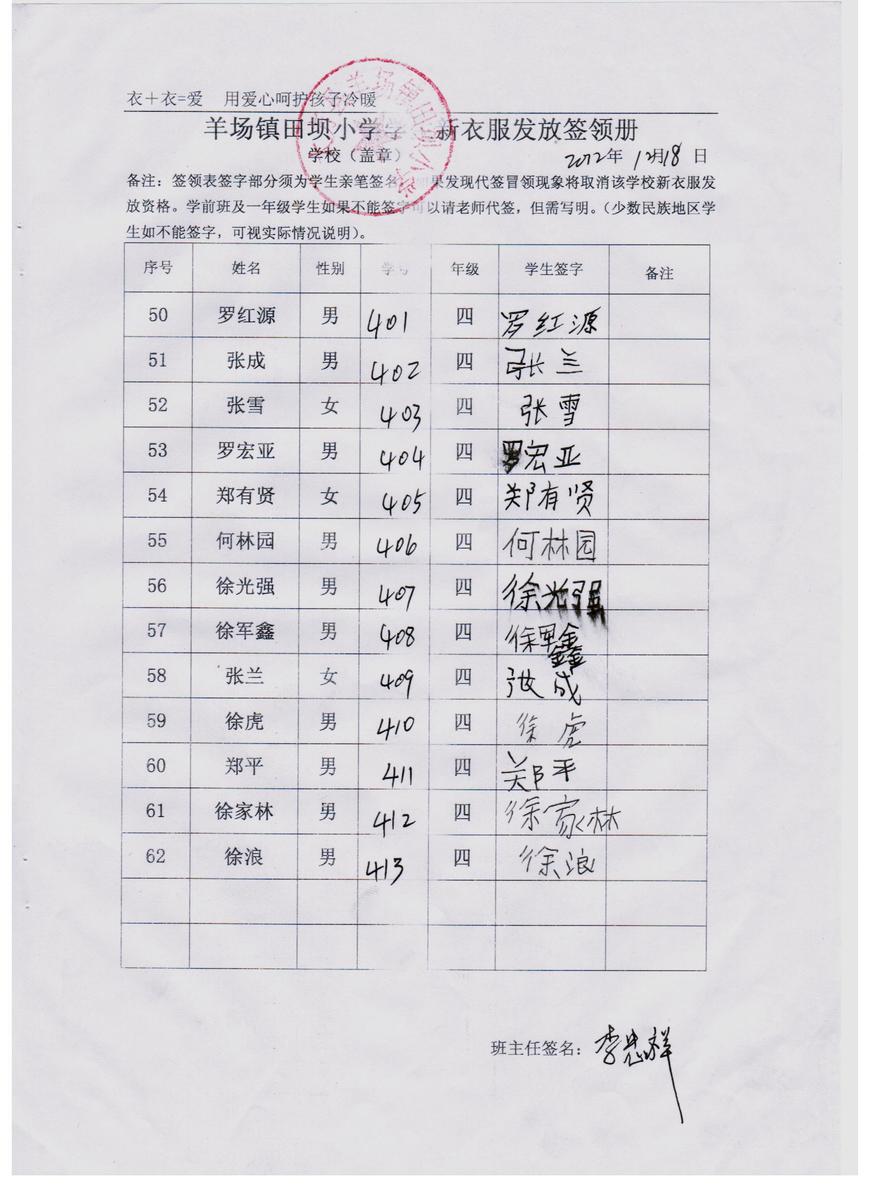 衣+衣=爱 用爱心呵护孩子冷暖
羊场镇田坝小学学 新衣服发放签领册
学校（盖章） 2012年 12月18 日
备注：签领表签字部分须为学生亲笔签名 果发现代签冒领现象将取消该学校新衣服发
放资格。学前班及一年级学生如果不能签字可以请老师代签，但需写明。（少数民族地区学
生如不能签字，可视实际情况说明）。
序号 姓名 性别 学号 年级 学生签字 备注
50 罗红源 男 401 四 罗红源
51 张成 男 402 四 张兰
52 张雪 女 403 四 张雪
53 罗宏亚 男 404 四 罗宏亚
54 郑有贤 女 405 四 郑有贤
55 何林园 男 406 四 何林园
56 徐光强 男 407 四 徐光强
57 徐军鑫 男 408 四 徐军鑫
58 张兰 女 409 四 张成
59 徐虎 男 410 四 徐虎
60 郑平 男 411 四 郑平
61 徐家林 男 412 四 徐家林
62 徐浪 男 413 四 徐浪
班主任签名：李忠祥
羊场镇田坝小学